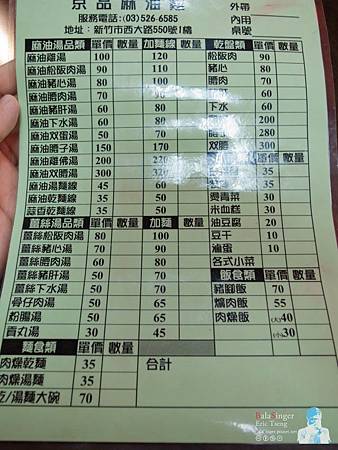 京品麻油雞
外帶
服務電話:(03)526-6585
內用
地址：新竹市西大路550號1樓
桌號
麻油湯品類 單價 數量 加麵線
麻油雞湯 100 120
麻油松阪肉湯 90 110
麻油豬心湯 80 100
麻油腰肉湯 70
麻油豬肝湯 70
麻油下水湯 60
麻油雙蛋湯 50 70
麻油腰子湯 150 170
麻油雞佛湯 200
麻油雙腰湯 300
麻油湯麵線 45
麻油乾麵線 35
蒜香乾麵線 35
薑絲湯品類 單價 數量 加麵 數量
薑絲松阪肉湯 80 100
薑絲豬心湯 70 90
薑絲腰肉湯 60 80
薑絲豬肝湯 50 70
薑絲下水湯 50 70
骨仔肉湯 50 65
粉腸湯 50 65
貢丸湯 30 45
麵食類 單價 數量
肉燥乾麵 35
肉燥湯麵 35
乾/湯麵大碗 70
合計
乾盤類 單價 數量
松阪肉 90
豬心
腰肉
下水 60
200
雙腰 280
300
單價 數量
35
35
燙青菜 30
米血糕 30
油豆腐 20
豆干 10
滷蛋 10
各式小菜
飯食類 單價 數量
豬腳飯 70
爌肉飯 55
肉燥飯 (大)40
(小)30
BalaSinger
Eric Tseng